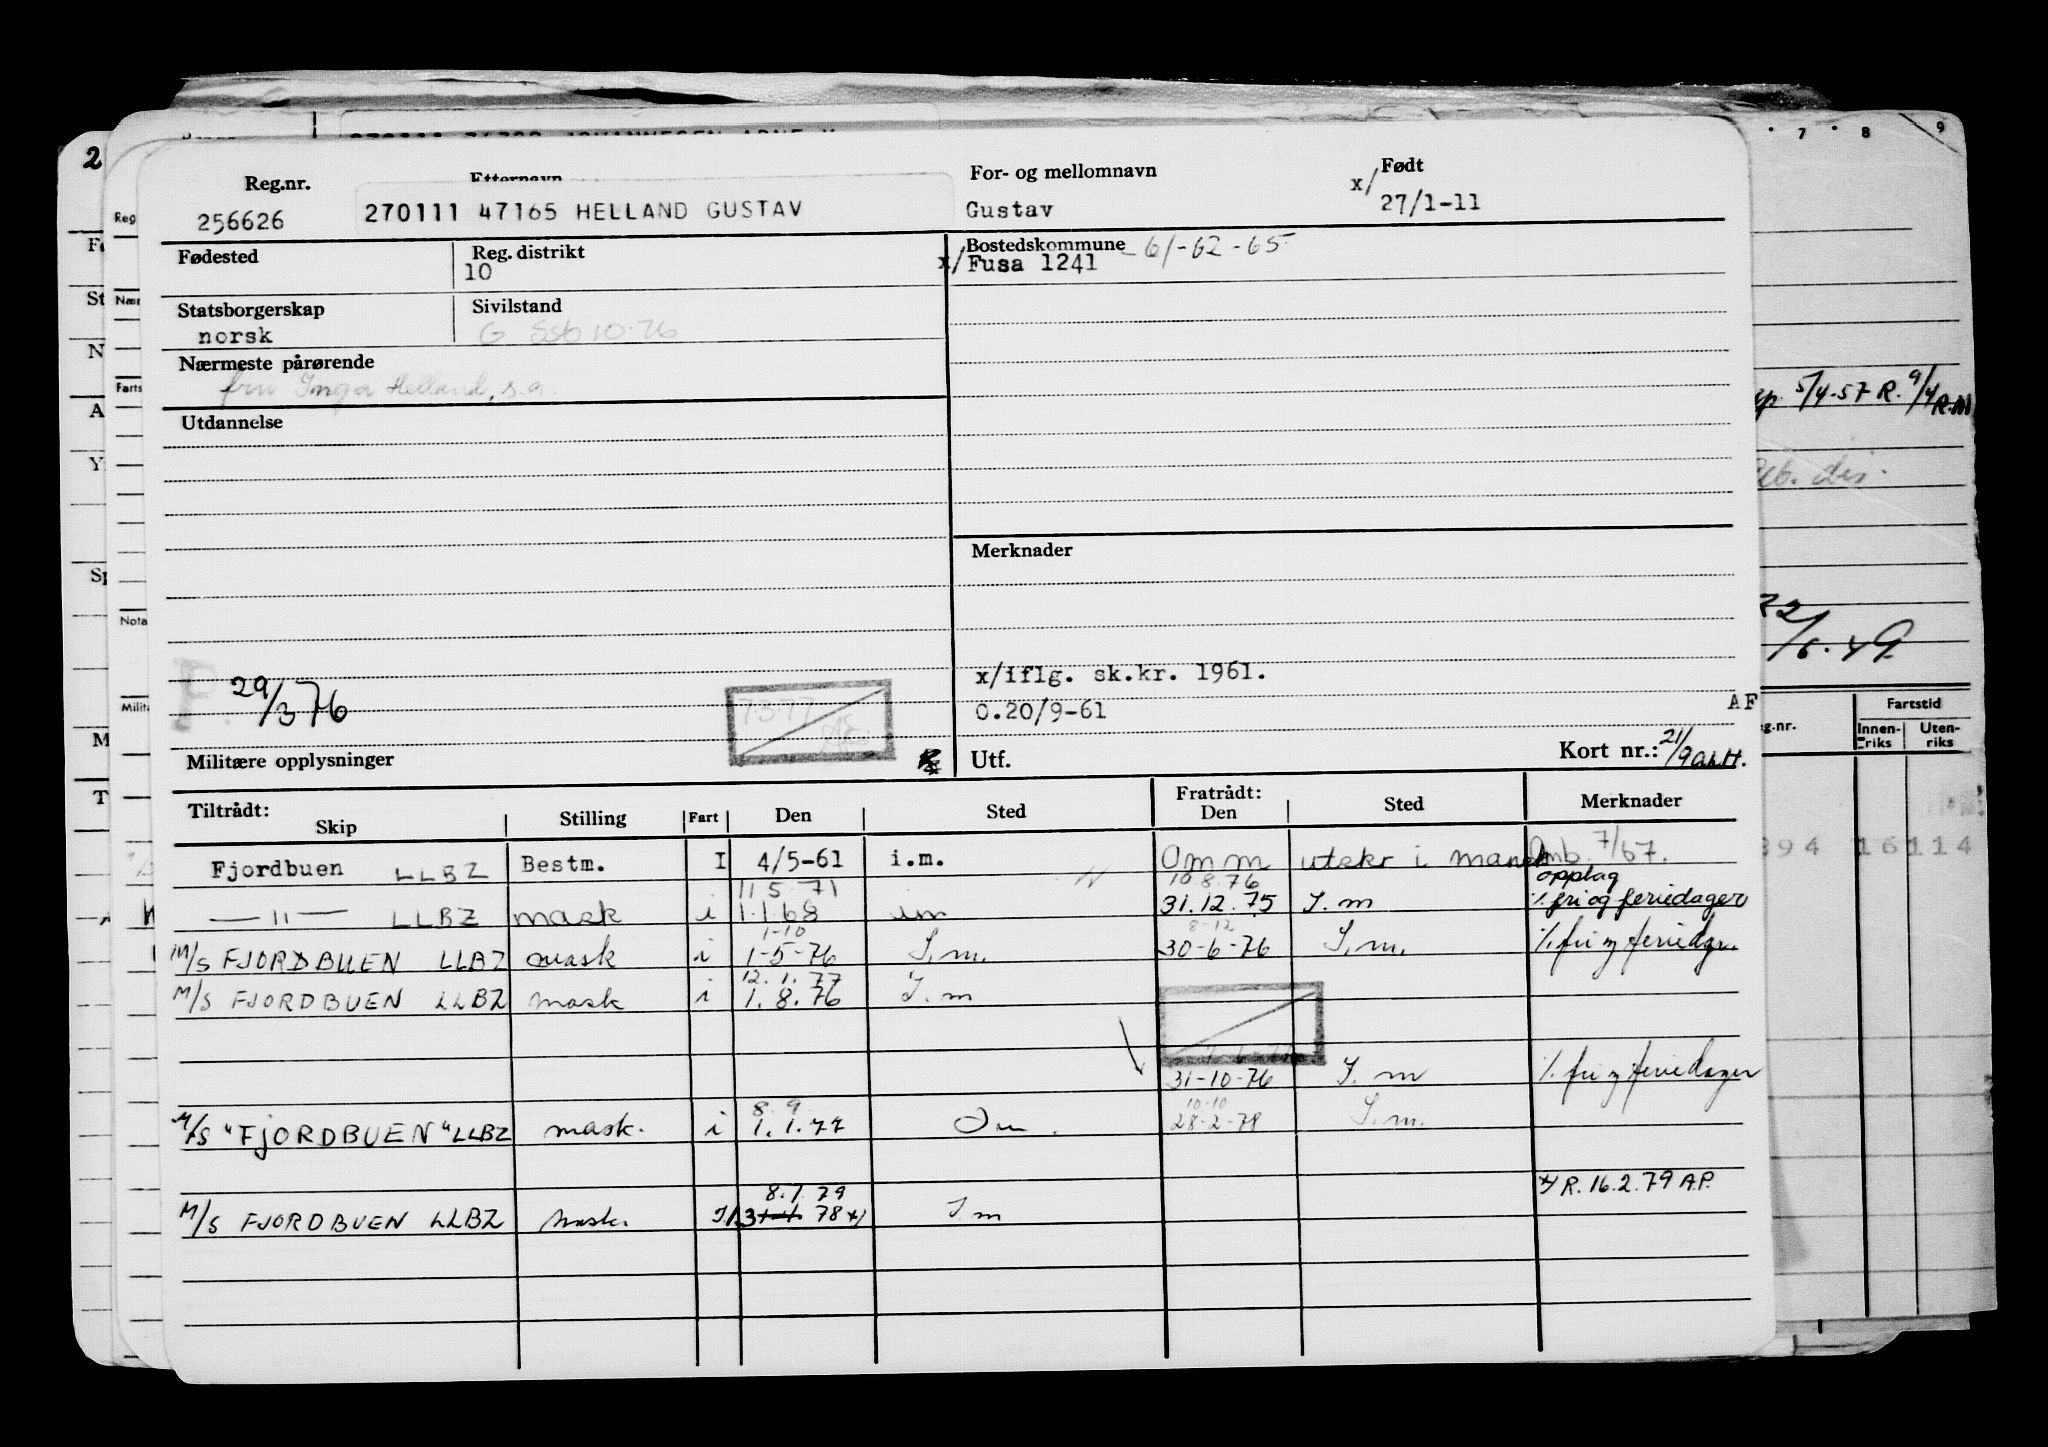 Reg.nr. Etternavn For- og mellomnavn x/ Født
256626 270111 47165 HELLAND GUSTAV Gustav 27/1-11
Fødested Reg. distrikt Bostedskommune - 61-62-65
10 x/ Fusa 1241
Statsborgerskap Sivilstand
norsk G SSb 10-76
Nærmeste pårørende
fru Inga Helland, s.a.
Utdannelse
Merknader
x/iflg. sk.kr. 1961.
P. 29/3 76 7.3.77 0.20/9-61 AF
Militære opplysninger Utf. Kort nr.: 21/9
Tiltrådt: Fratrådt:
Skip Stilling Fart Den Sted Den Sted Merknader
Fjordbuen LLBZ Bestm. I 4/5-61 i.m. Omm utskr i Omb. 7/67.
11 5 71 10.8.76 opplag
— " — LLBZ mask i 1.1.68 im 31.12.75 I.m ٪ fri og feriedager
1-10 8-12
M/S FJORDBUEN LLBZ mask i 1-5-76 I.m. 30-6-76 I.m. ٪ fri og feriedgr.
12.1.77
M/S FJORDBUEN LLBZ mask i 1.8.76 I.m
31-10-76 I.m ٪ fri og feriedager
8.9 10-10
M/S "FJORDBUEN" LLBZ mask. i 1.1.77 28-2-78 I.m.
8.1.79 x/ R. 16.2.79 A.P.
M/S FJORDBUEN LLBZ mask. 78 x/ I.m
5/4-57 R. 9/4 R.M
dis.
22/6.49
Fartstid
Innen-riks Uten-riks
394 16 114
7 8 9
2